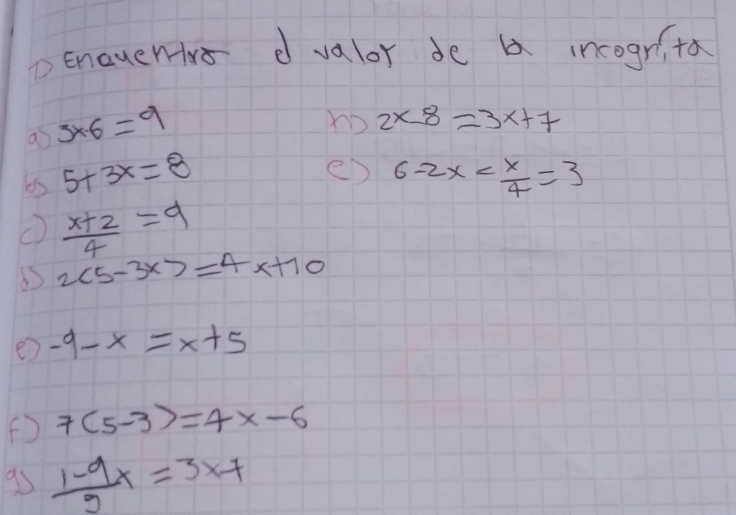 1) Encuentra el valor de la incognita
a) 3x6=9
b) 5+3x=8
c) x+2/4=9
d) 2<5-3x>=4x+10
e) -9-x=x+5
f) 7(5-3)=4x-6
g) 1-9x/9=3x-7
h) 2x-8=3x+7
e) 6-2x<x/4=3